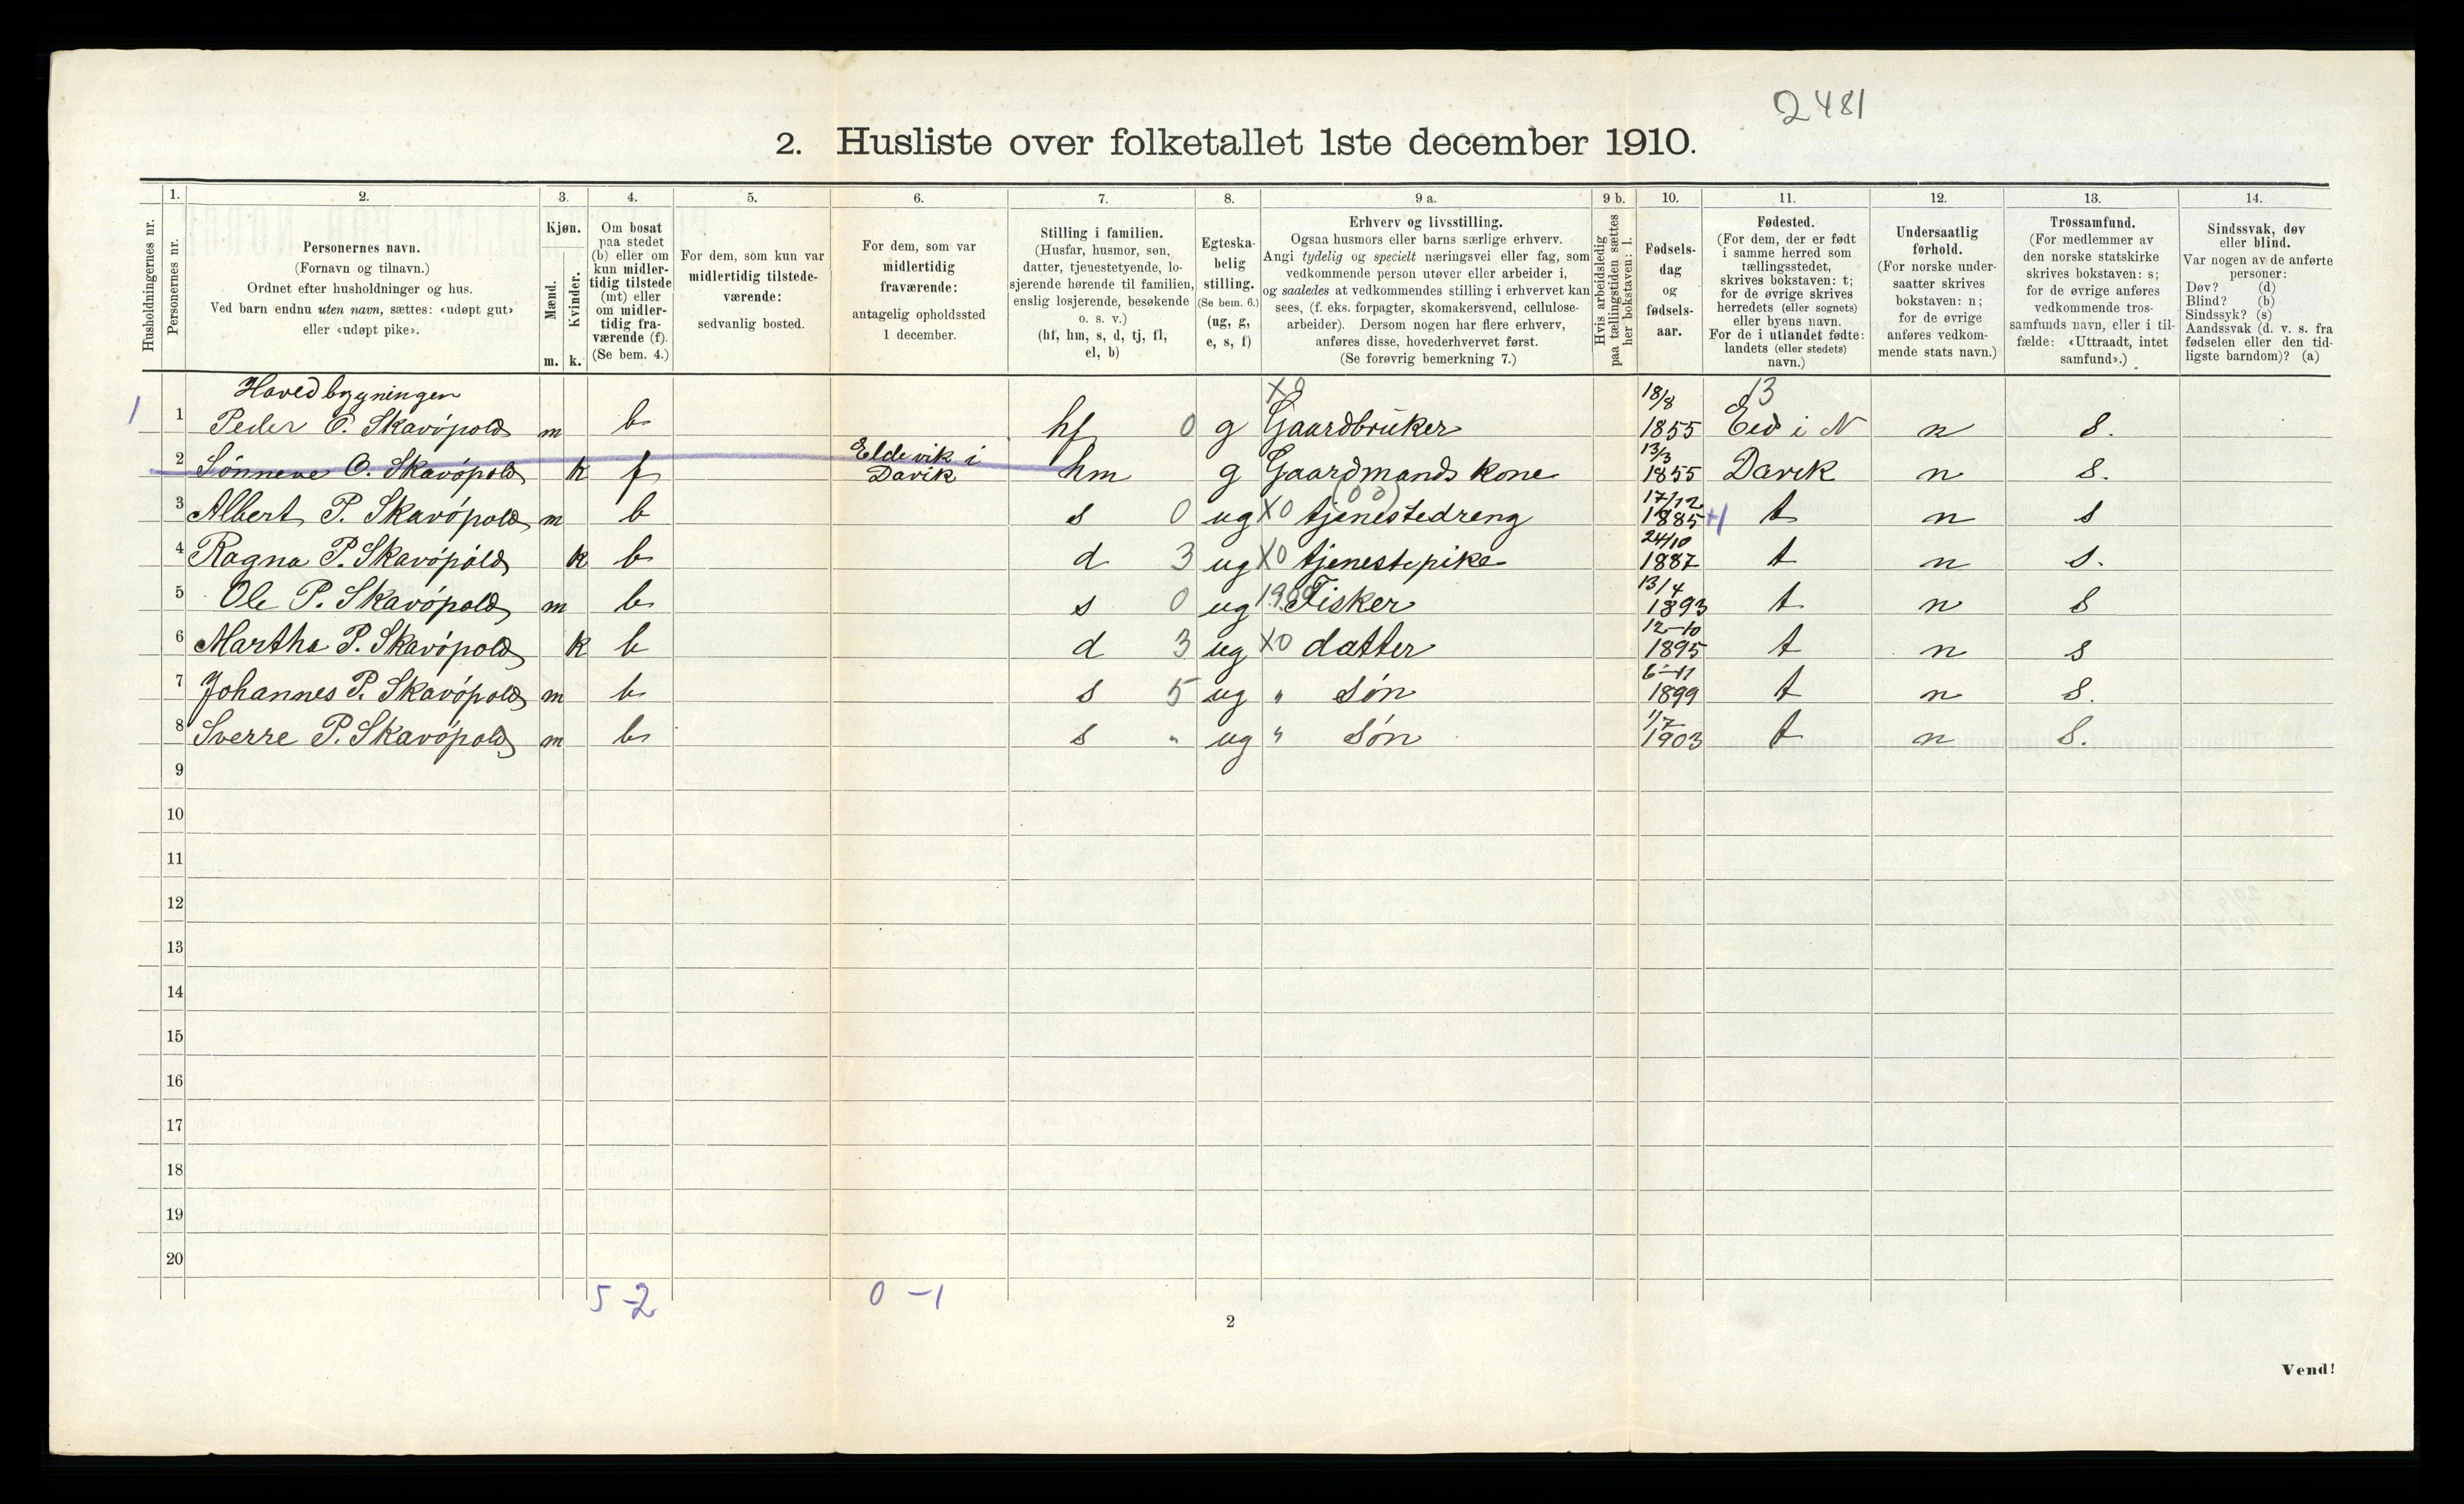 2481
2. Husliste over folketallet 1ste december 1910.
1. 2. 3. 4. 5. 6. 7. 8. 9 a. 9 b. 10. 11. 12. 13. 14.
Husholdningernes nr.
Personernes nr.
Personernes navn.
(Fornavn og tilnavn.)
Ordnet efter husholdninger og hus.
Ved barn endnu uten navn, sættes: «udøpt gut»
eller «udøpt pike».
Kjøn.
Mænd.
Kvinder.
m. k.
Om bosat
paa stedet
(b) eller om
kun midler-
tidig tilstede
(mt) eller
om midler-
tidig fra-
værende (f).
(Se bem. 4.)
For dem, som kun var
midlertidig tilstede-
værende:
sedvanlig bosted.
For dem, som var
midlertidig
fraværende:
antagelig opholdssted
1 december.
Stilling i familien.
(Husfar, husmor, søn,
datter, tjenestetyende, lo-
sjerende hørende til familien,
enslig losjerende, besøkende
o. s. v.)
(hf, hm, s, d, tj, fl,
el, b)
Egteska-
belig
stilling.
(Se bem. 6.)
(ug, g,
e, s, f)
Erhverv og livsstilling.
Ogsaa husmors eller barns særlige erhverv.
Angi tydelig og specielt næringsvei eller fag, som
vedkommende person utøver eller arbeider i,
og saaledes at vedkommendes stilling i erhvervet kan
sees, (f. eks. forpagter, skomakersvend, cellulose-
arbeider). Dersom nogen har flere erhverv,
anføres disse, hovederhvervet først.
(Se forøvrig bemerkning 7.)
Hvis arbeidsledig
paa tællingstiden sættes
her bokstaven: l.
Fødsels-
dag
og
fødsels-
aar.
Fødested.
(For dem, der er født
i samme herred som
tællingsstedet,
skrives bokstaven: t;
for de øvrige skrives
herredets (eller sognets)
eller byens navn.
For de i utlandet fødte:
landets (eller stedets)
navn.)
Undersaatlig
forhold.
(For norske under-
saatter skrives
bokstaven: n;
for de øvrige
anføres vedkom-
mende stats navn.)
Trossamfund.
(For medlemmer av
den norske statskirke
skrives bokstaven: s;
for de øvrige anføres
vedkommende tros-
samfunds navn, eller i til-
fælde: «Uttraadt, intet
samfund».)
Sindssvak, døv
eller blind.
Var nogen av de anførte
personer:
Døv? (d)
Blind? (b)
Sindssyk? (s)
Aandssvak (d. v. s. fra
fødselen eller den tid-
ligste barndom)? (a)
Hovedbygningen X0 18/8 13
1 1 Peder O. Skavöpold m b hf 0 g Gaardbruker 1855 Eid i N n s.
Eldevik i 13/3
2 Sönneve O. Skavöpold k f Davik hm g Gaardmands kone 1855 Davik n s.
(00) 17/12
3 Albert P. Skavöpold m b s 0 ug X0 tjenestedreng 1885 +1 t n s
24/10
4 Ragna P. Skavöpold k b d 3 ug X0 tjenestepike 1887 t n s.
13/4
5 Ole P. Skavöpold m b s 0 ug 1900 Fisker 1893 t n s
12-10
6 Martha P. Skavöpold k b d 3 ug X0 datter 1895 t n s
6-11
7 Johannes P. Skavöpold m b s 5 ug " Søn 1899 t n s.
1/7
8 Sverre P. Skavöpold m b s " ug " Søn 1903 t n s.
9
10
11
12
13
14
15
16
17
18
19
20
5-2 0-1
2
Vend!